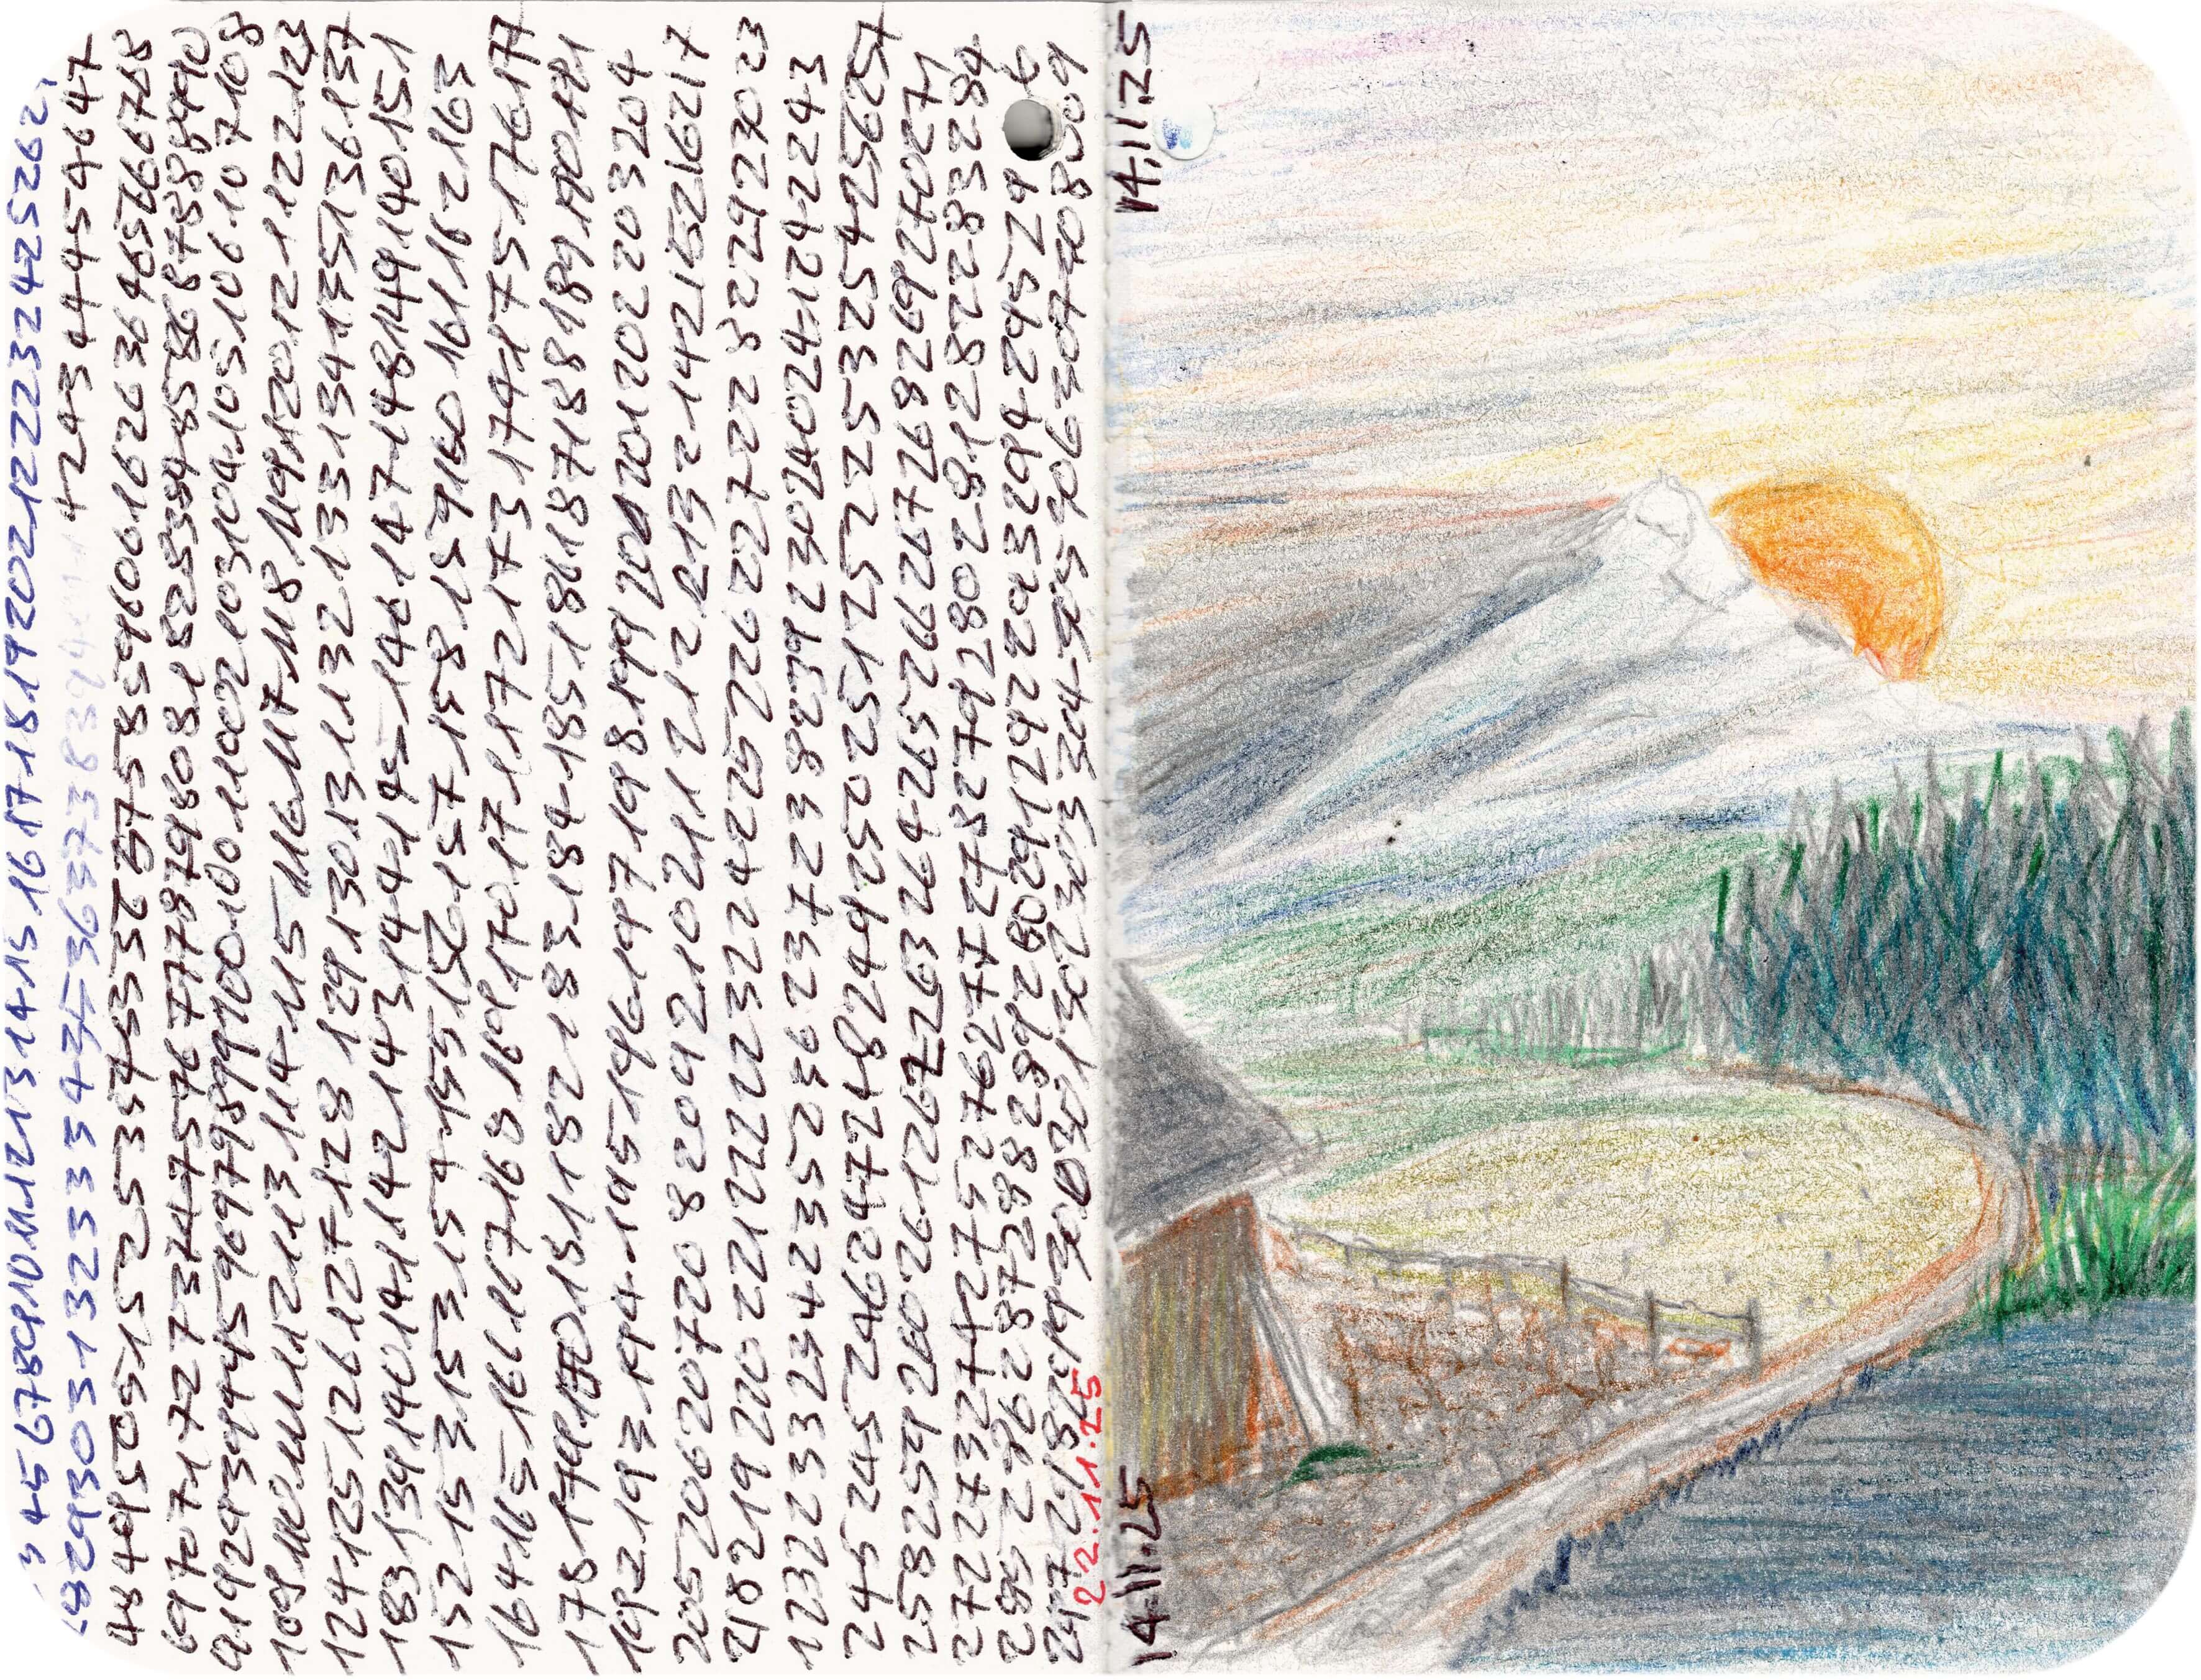 3 4 5 6 7 8 9 10 11 12 13 14 15 16 17 18 19 20 21 22 23 24 25 26 2
28 29 30 31 32 33 34 35 36 37 38 39 4 42 43 44 45 46 47
48 49 50 51 52 53 54 55 56 57 58 59 60 61 62 63 64 65 66 67 68
69 70 71 72 73 74 75 76 77 78 79 80 81 82 83 84 85 86 87 88 89 90
91 92 93 94 95 96 97 98 99 100 101 102 103 104 105 106 107 108
109 110 111 112 113 114 115 116 117 118 119 120 121 122 123
124 125 126 127 128 129 130 131 132 133 134 135 136 137
138 139 140 141 142 143 144 145 146 147 148 149 140 151
152 153 153 154 155 156 157 158 159 160 161 162 163
164 165 166 167 168 169 170 171 172 173 174 175 176 177
178 179 180 181 182 183 184 185 186 187 188 189 190 191
192 193 194 195 196 197 198 199 200 201 202 203 204
205 206 207 208 209 210 211 212 213 214 215 216 217
218 219 220 221 222 223 224 225 226 227 228 229 230 23
1 232 233 234 235 236 237 238 239 230 240 241 242 243
245 245 246 247 248 249 250 251 252 253 254 256 257
258 259 260 261 262 263 264 265 266 267 268 269 270 271
272 273 274 275 276 277 278 279 280 281 282 283 284
285 286 287 288 289 290 291 292 293 294 295 296
297 298 299 300 301 302 303 304 305 306 307 308 309
22.11.25
14.11.25
14.11.25